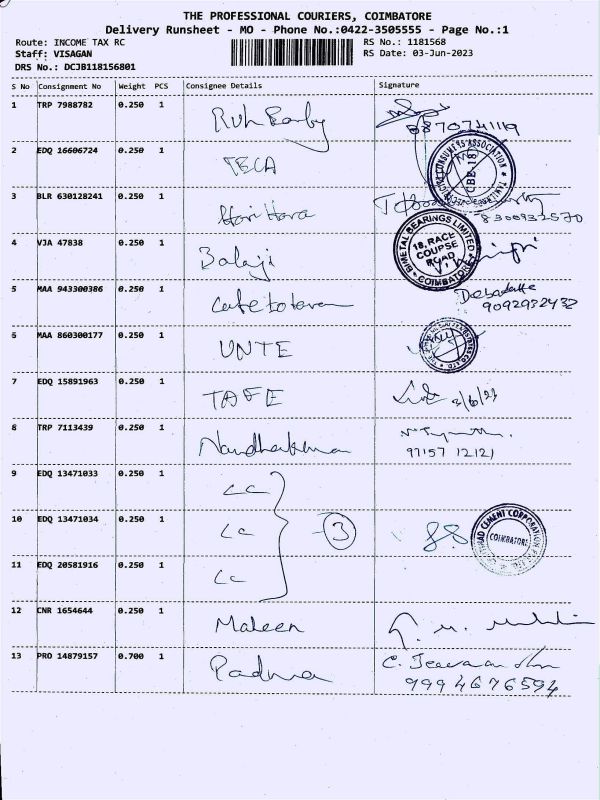 THE PROFESSIONAL COURIERS, COIMBATORE
Delivery Runsheet - MO - Phone No.:0422-3505555 - Page No.:1
Route: INCOME TAX RC
RS No.: 1181568
Staff: VISAGAN
RS Date: 03-Jun-2023
DRS No.: DCJB118156801
S No Consignment No Weight PCS Consignee Details Signature
1 TRP 7988782 0.250 1
8870741119
2 EDQ 16606724 0.250 1 TECA
3 BLR 630128241 0.250 1 Hari Hara
8300932570
4 VJA 47838 0.250 1 Balaji
BIMETAL BEARINGS LIMITED
18, RACE
COUPSE
ROAD
COIMBATORE
5 MAA 943300386 0.250 1
9092932432
6 MAA 860300177 0.250 1 UNTE
7 EDQ 15891963 0.250 1 TAFE 3/6/23
8 TRP 7113439 0.250 1
97157 12121
9 EDQ 13471033 0.250 1 LC
10 EDQ 13471034 0.250 1 LC 3 88
CEMENT CORPORATION
COIMBATORE
11 EDQ 20581916 0.250 1 LC
12 CNR 1654644 0.250 1 Maleen
13 PRO 14879157 0.700 1 Padma
9994676594